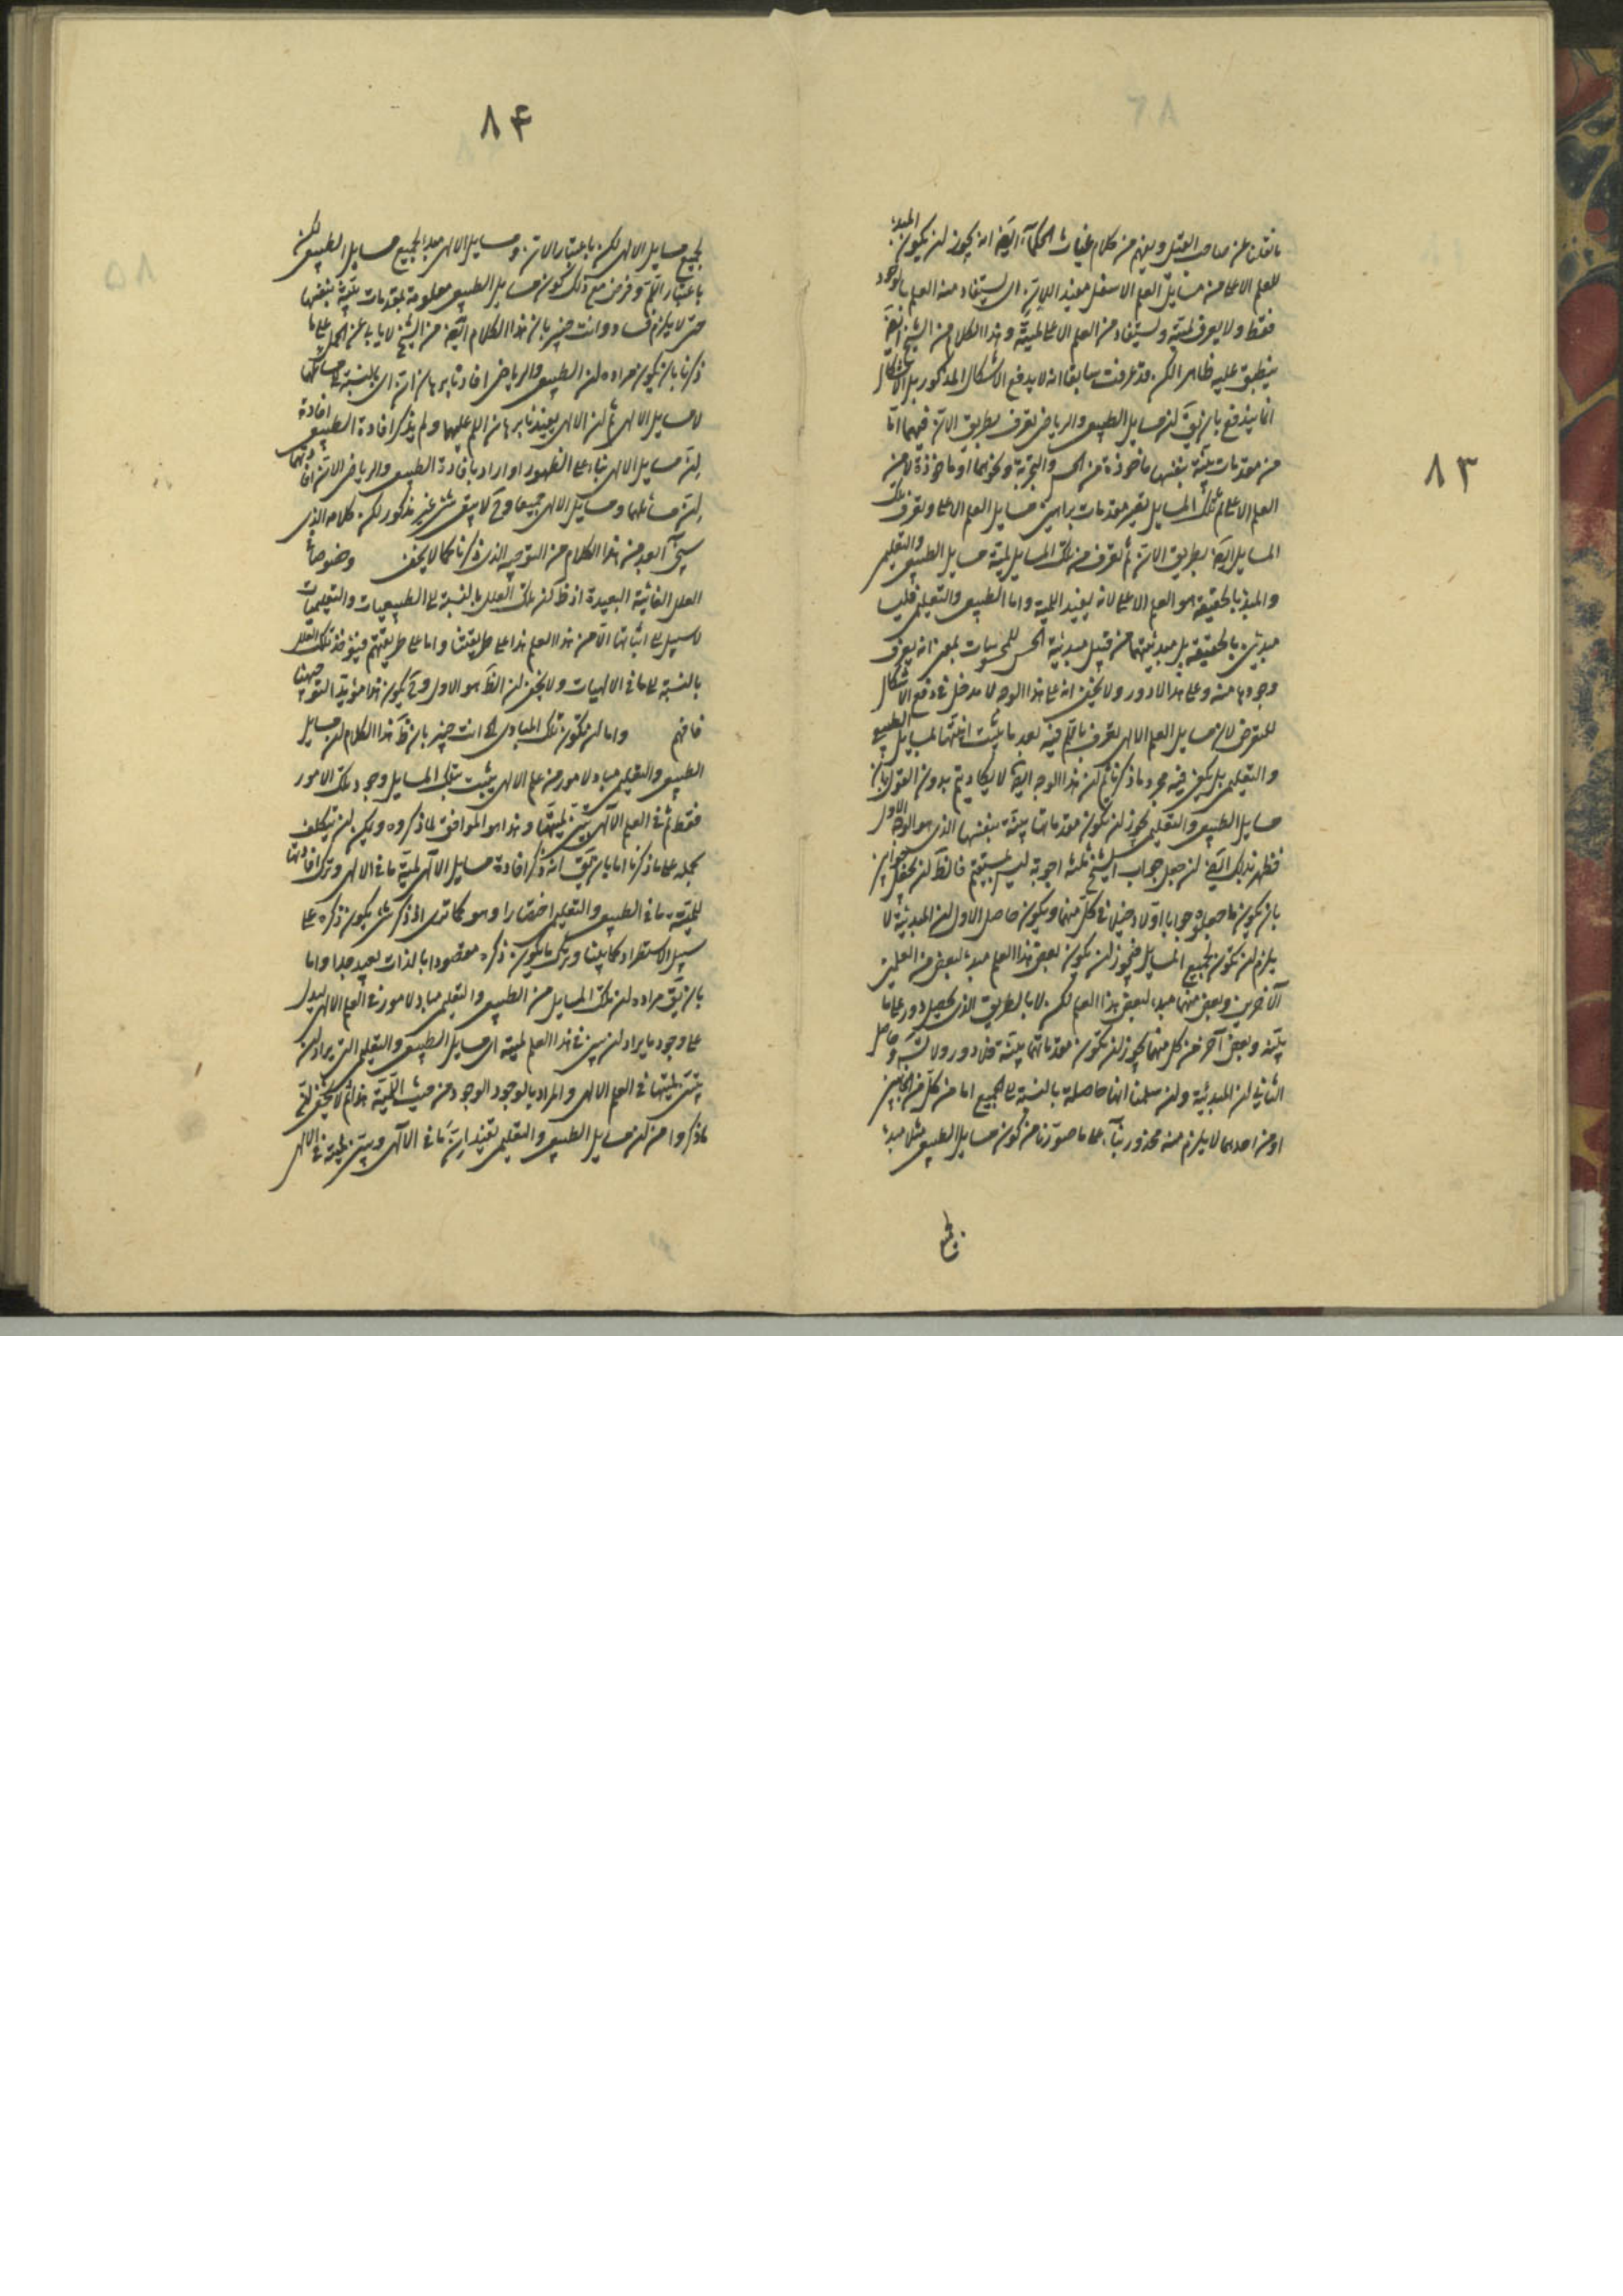 ٨٣
ما نقلنا عن صاحب القيل ويفهم من كلام غياث الحكماء ايضا انه يجوز ان يكون المبدء
للعلم الاعلى من مسايل العلم الاسفل مفيد اللان اى يستفاد منه العلم بالوجود
فقط ولا يعرف لميته ويستفاد من العلم الاعلى لميته وهذا الكلام من الشيخ ايضا
ينطبق عليه ظاهرا لكن قد عرفت سابقا انه لا يدفع الاشكال المذكور بل الاشكال
انما يندفع بان يق ان مسايل الطبيعى والرياضى تعرف بطريق الان فيهما اما
من مقدمات بينة بنفسها ماخوذة من الحس والتجربة ونحوهما او ماخوذة لا من
العلم الاعلى ثم تلك المسايل تصير مقدمات براهين مسايل العلم الاعلى وتعرف تلك
المسايل ايضا بطريق الان ثم تعرف من تلك المسايل لمية مسايل الطبيعى والتعليمى
والمبدء بالحقيقة هو العلم الاعلى لانه يفيد اللمية واما الطبيعى والتعليمى فليسا
مبدئين بالحقيقة بل مبدئيتهما من قبيل مبدئية الحس للمحسوسات بمعنى انه يعرف
وجودها منه وعلى هذا لا دور ولا يخفى انه على هذا الوجه لا مدخل فى دفع الاشكال
للتعرض لان مسايل العلم الالهى تعرف باللم فيه بعد ما يثبت انيتها لمسايل الطبيعى
والتعليمى بل يكفى فيه مجرد ما ذكرنا ثم ان هذا الوجه ايضا لا يكاد يتم بدون القول بان
مسايل الطبيعى والتعليمى يجوز ان تكون مقدماتها بينة بنفسها الذى هو الوجه الاول
فظهر بذلك ايضا ان جعل جواب الشيخ ثلثة اجوبة ليس بمستقيم فالظ ان يجعل جوابين
بان يكون ما جعلوه جوابا اولا دخيلا فى كل منهما ويكون حاصل الاول ان المبدئية لا
يلزم ان تكون لجميع المسايل فيجوز ان يكون بعض هذا العلم مبدء لبعض من العلمين
الآخرين وبعض منهما مبدء لبعض هذا العلم لكن لا بالطريق الذى يحصل دور على ما
بينه وبعض آخر من كل منهما يجوز ان تكون مقدماتها بينة فلا دور ولا تس وحاصل
الثانى ان المبدئية وان سلمنا انها حاصلة بالنسبة الى الجميع اما من كل من الجانبين
او من احدهما لا يلزم منه محذور بناء على ما صورنا من كون مسايل الطبيعى مثلا مبدء
لجميع
٨۴
لجميع مسايل الالهى لكن باعتبار الان ومسايل الالهى مبدءا لجميع مسايل الطبيعى لكن
باعتبار اللم وفرض مع ذلك كون مسايل الطبيعى معلومة بمقدمات بينة بنفسها
حتى لا يلزم فساد وانت خبير بان هذا الكلام ايضا من الشيخ لا يابى عن الحمل على ما
ذكرنا بان يكون مراده ان الطبيعى والرياضى افادتا برهان ان اى بالنسبة الى مسائلهما
لا مسايل الالهى ثم ان الالهى يفيدنا برهان اللم عليهما ولم يذكر افادة الطبيعى افادة
ان مسايل الالهى بناء على الظهور او اراد بافادة الطبيعى والرياضى الان افادتهما
ان مسائلهما ومسايل الالهى جميعا وح لا يبقى شئ غير مذكور لكن كلامه الذى
سيجئ آبعد من هذا الكلام من التوجيه الذى ذكرنا كما لا يخفى وخصوصا فى
العلل الغائية البعيدة اذ ظ كون تلك العلل بالنسبة الى الطبيعيات والتعليميات
لا سبيل الى اثباتها الا من هذا العلم هذا على طريقتنا واما على طريقتهم فتؤخذ تلك العلل
بالنسبة الى ما فى الالهيات ولا يخفى ان الظ هو الاول وح يكون هذا مؤيدا لتوجيهنا
فافهم واما ان تكون تلك المبادى اه انت خبير بان ظ هذا الكلام ان مسايل
الطبيعى والتعليمى مباد لامور من علم الالهى يثبت بتلك المسايل وجود تلك الامور
فقط ثم فى العلم الالهى يتبين لميتها وهذا هو الموافق لما ذكروه ويمكن ان يتكلف
بحمله على ما ذكرنا اما بان يق انه ذكر افادة مسايل الالهى لمية ما فى الالهى وترك افادتها
للمية ما فى الطبيعى والتعليمى اختصارا وهو كما ترى اذ ذكر شئ يكون ذكره على
سبيل الاستطراد كما بينا وترك ما يكون ذكره مقصودا بالذات بعيد جدا واما
بان يق مراده ان تلك المسايل من الطبيعى والتعليمى مباد لامور فى العلم الالهى ليدل
على وجود ما يراد ان يبين فى هذا العلم لميته اى مسايل الطبيعى والتعليمى التى يراد ان
يتبين لميتها فى العلم الالهى والمراد بالوجود الوجود من حيث اللمية هذا ثم لا يخفى ان
ما ذكروا من ان مسايل الطبيعى والتعليمى تفيد ان ما فى الالهى ويتبين لميته فى الالهى